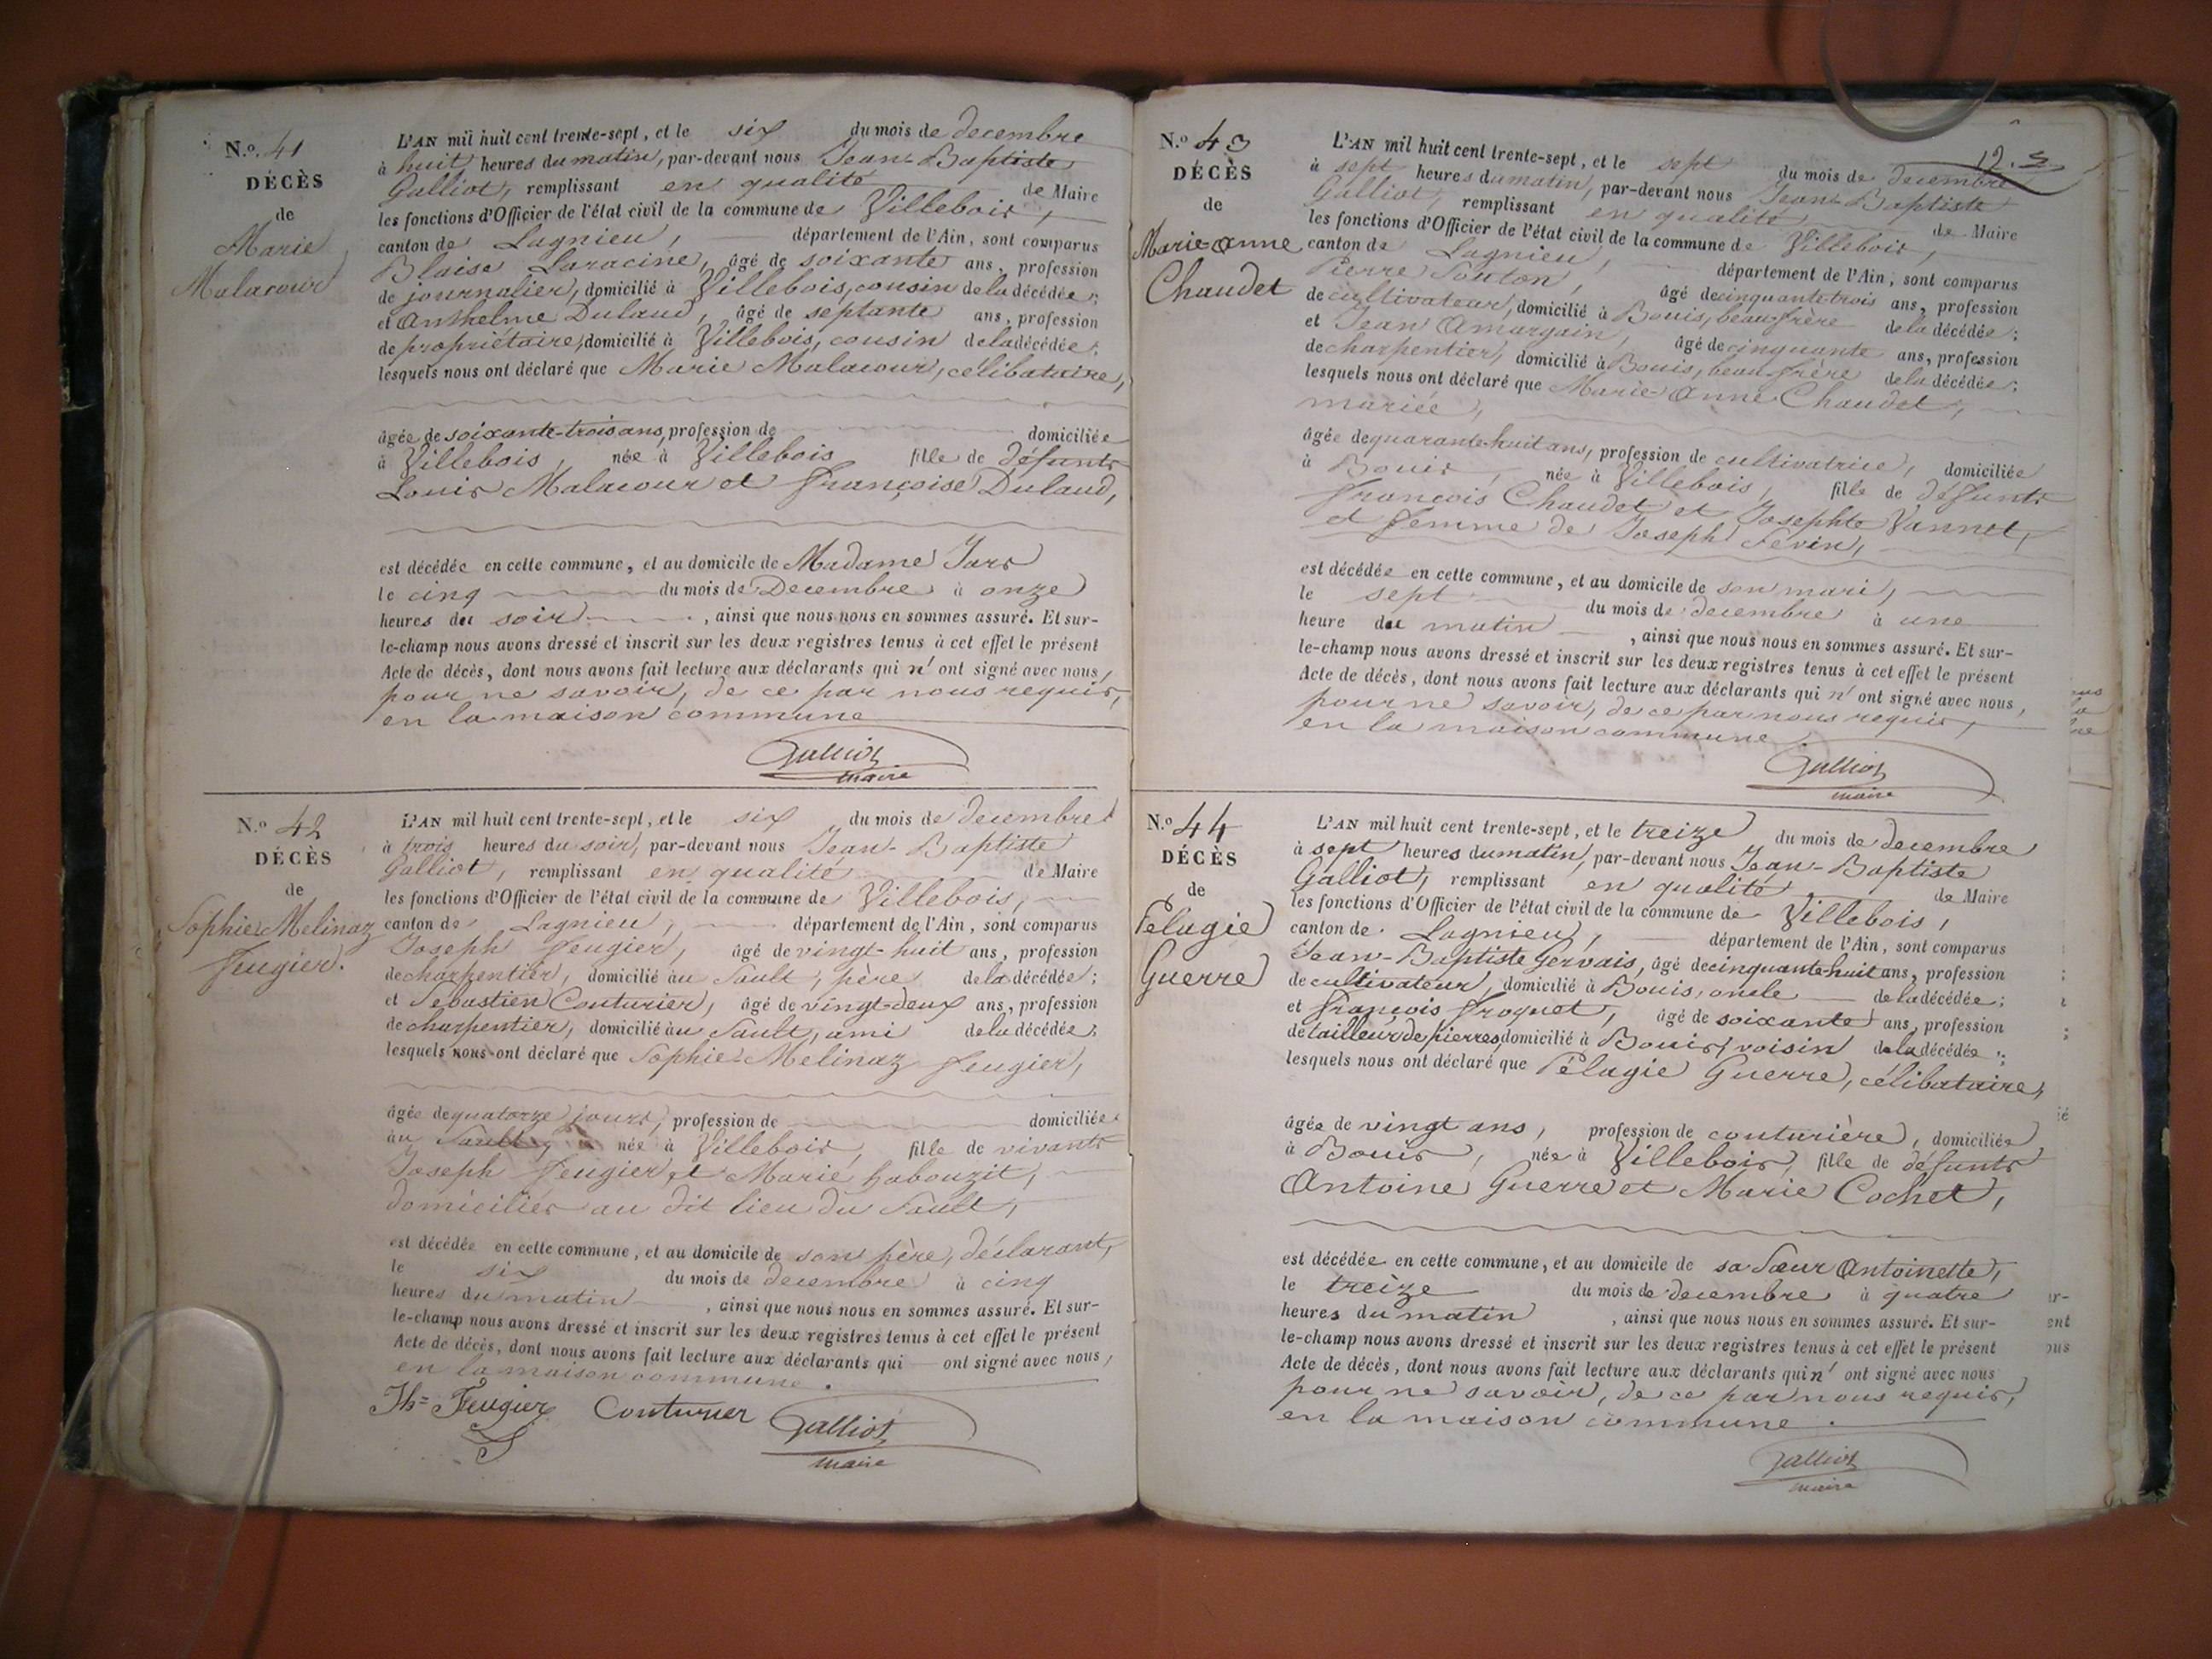 N.o 41
DÉCÈS
de
Marie
Malacour
L'AN mil huit cent trente-sept, et le six du mois de decembre
à huit heures du matin, par-devant nous Jean-Baptiste
Galliot, remplissant en qualité de Maire
les fonctions d'Officier de l'état civil de la commune de Villebois,
canton de Lagnieu, département de l'Ain, sont comparus
Blaise Laracine, âgé de soixante ans, profession
de journalier, domicilié à Villebois, cousin de la décédée;
et Anthelme Dulaud, âgé de septante ans, profession
de propriétaire, domicilié à Villebois, cousin de la décédée;
lesquels nous ont déclaré que Marie Malacour, célibataire,
âgée de soixante-trois ans, profession de domiciliée
à Villebois, née à Villebois fille de défunts
Louis Malacour et Françoise Dulaud,
est décédée en cette commune, et au domicile de Madame Jars
le cinq du mois de Decembre à onze
heures du soir, ainsi que nous nous en sommes assuré. Et sur-
le-champ nous avons dressé et inscrit sur les deux registres tenus à cet effet le présent
Acte de décès, dont nous avons fait lecture aux déclarants qui n'ont signé avec nous,
pour ne savoir, de ce par nous requis,
en la maison commune
Galliot
maire
N.o 42
DÉCÈS
de
Sophie Melinaz
Feugier.
L'AN mil huit cent trente-sept, et le six du mois de decembre
à trois heures du soir, par-devant nous Jean-Baptiste
Galliot, remplissant en qualité de Maire
les fonctions d'Officier de l'état civil de la commune de Villebois,
canton de Lagnieu, département de l'Ain, sont comparus
Joseph Feugier, âgé de vingt-huit ans, profession
de charpentier, domicilié au Sault, père de la décédée;
et Sebastien Couturier, âgé de vingt-deux ans, profession
de charpentier, domicilié au Sault, ami de la décédée;
lesquels nous ont déclaré que Sophie-Melinaz Feugier,
âgée de quatorze jours, profession de domiciliée
au Sault, née à Villebois, fille de vivants
Joseph Feugier et Marie habouzit,
domiciliés au dit lieu du Sault,
est décédée en cette commune, et au domicile de son père, déclarant,
le six du mois de decembre à cinq
heures du matin, ainsi que nous nous en sommes assuré. Et sur-
le-champ nous avons dressé et inscrit sur les deux registres tenus à cet effet le présent
Acte de décès, dont nous avons fait lecture aux déclarants qui ont signé avec nous,
en la maison commune.
Jh= Feugier Couturier Galliot
maire
12.
N.o 43
DÉCÈS
de
Marie-Anne
Chaudet
L'AN mil huit cent trente-sept, et le sept du mois de decembre
à sept heures du matin, par-devant nous Jean-Baptiste
Galliot, remplissant en qualité de Maire
les fonctions d'Officier de l'état civil de la commune de Villebois,
canton de Lagnieu, département de l'Ain, sont comparus
Pierre Souton, âgé de cinquante-trois ans, profession
de cultivateur, domicilié à Bouis, beau-frère de la décédée;
et Jean Amargain, âgé de cinquante ans, profession
de charpentier, domicilié à Bouis, beau-frère de la décédée;
lesquels nous ont déclaré que Marie-Anne Chaudet,
mariée,
âgée de quarante-huit ans, profession de cultivatrice, domiciliée
à Bouis, née à Villebois, fille de défunts
François Chaudet et Josephte Vannet,
et femme de Joseph Sevin,
est décédée en cette commune, et au domicile de son mari,
le sept du mois de decembre à une
heure du matin, ainsi que nous nous en sommes assuré. Et sur-
le-champ nous avons dressé et inscrit sur les deux registres tenus à cet effet le présent
Acte de décès, dont nous avons fait lecture aux déclarants qui n'ont signé avec nous,
pour ne savoir, de ce par nous requis,
en la maison commune.
Galliot
maire
N.o 44
DÉCÈS
de
Pélagie
Guerre
L'AN mil huit cent trente-sept, et le treize du mois de decembre
à sept heures du matin, par-devant nous Jean-Baptiste
Galliot, remplissant en qualité de Maire
les fonctions d'Officier de l'état civil de la commune de Villebois,
canton de Lagnieu, département de l'Ain, sont comparus
Jean-Baptiste Gervais, âgé de cinquante-huit ans, profession
de cultivateur, domicilié à Bouis, oncle de la décédée;
et François Froquet, âgé de soixante ans, profession
de tailleur de pierres, domicilié à Bouis, voisin de la décédée;
lesquels nous ont déclaré que Pélagie Guerre, célibataire,
âgée de vingt ans, profession de couturière, domiciliée
à Bouis, née à Villebois, fille de défunts
Antoine Guerre et Marie Cochet,
est décédée en cette commune, et au domicile de sa Sœur Antoinette,
le treize du mois de decembre à quatre
heures du matin, ainsi que nous nous en sommes assuré. Et sur-
le-champ nous avons dressé et inscrit sur les deux registres tenus à cet effet le présent
Acte de décès, dont nous avons fait lecture aux déclarants qui n'ont signé avec nous
pour ne savoir, de ce par nous requis,
en la maison commune.
Galliot
maire